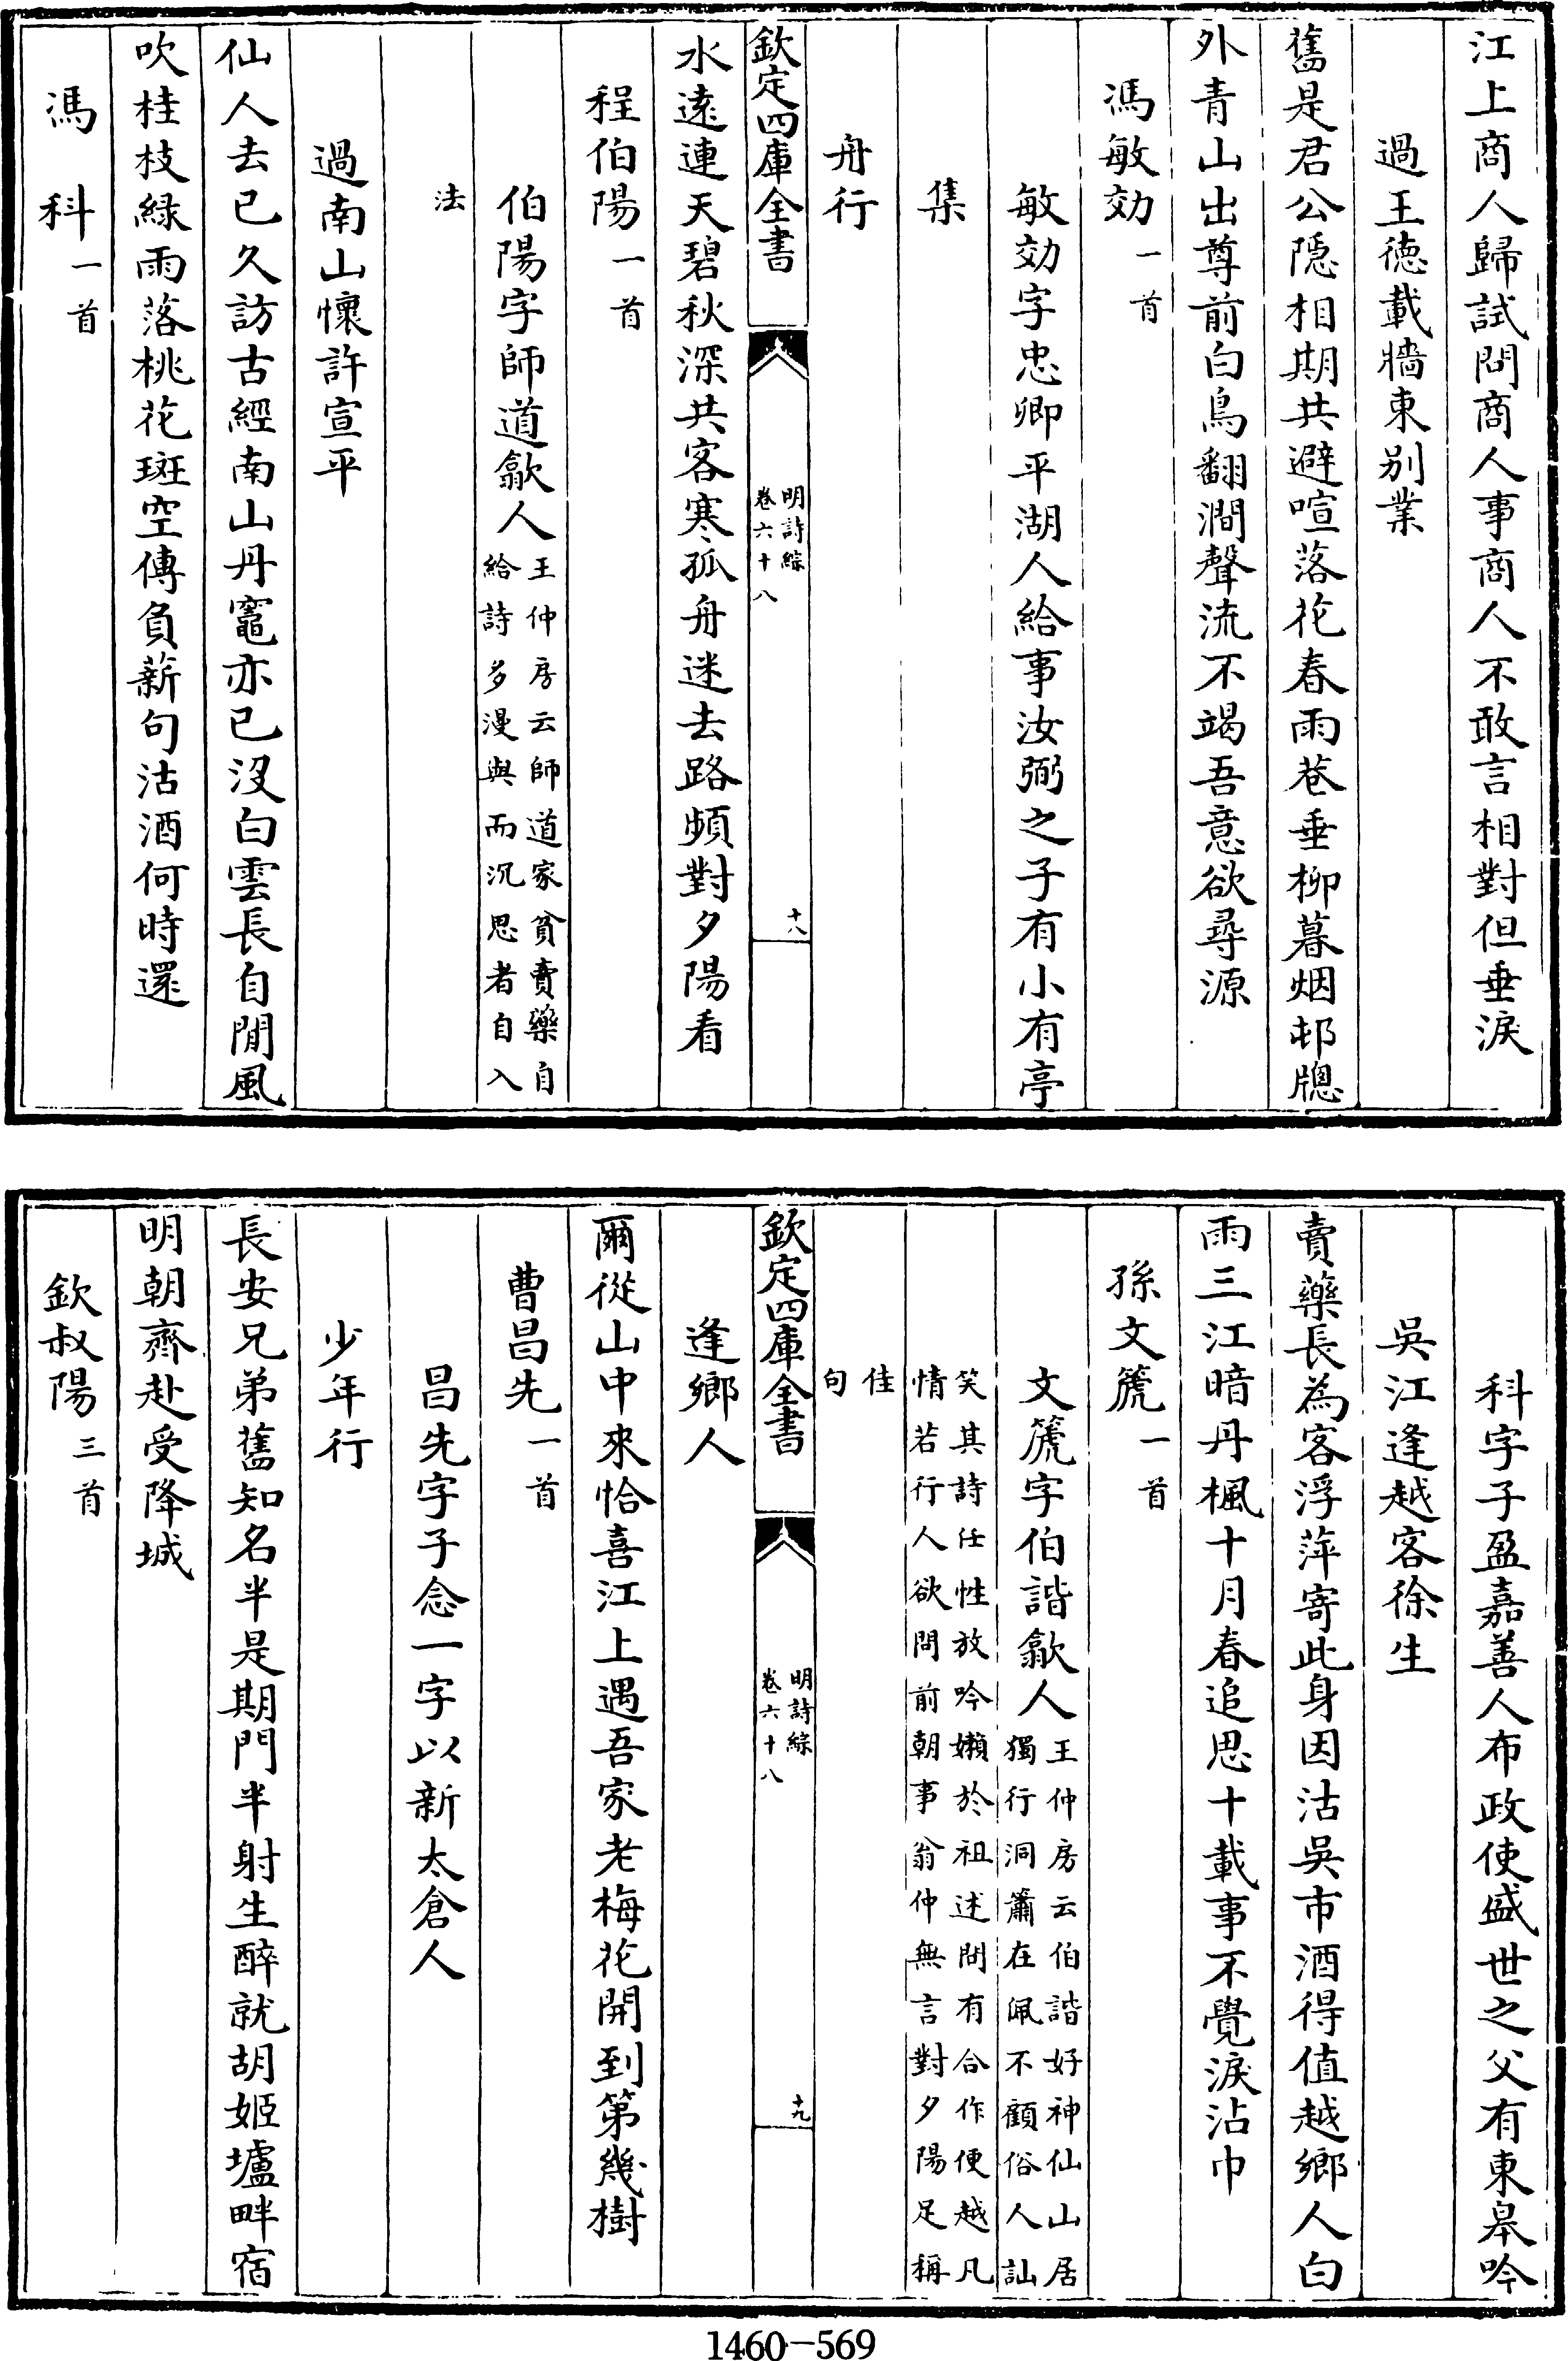 江上商人歸試問商人事商人不敢言相對但垂淚
過王德載牆東别業
舊是君公隱相期共避喧落花春雨巷垂柳暮烟邨牕
外青山出尊前白鳥翻澗聲流不竭吾意欲尋源
馮敏効一首
敏効字忠卿平湖人給事汝弼之子有小有亭
集
舟行
欽定四庫全書
明詩綜
卷六十八
十八
水遠連天碧秋深共客寒孤舟迷去路頻對夕陽看
程伯陽一首
伯陽字師道歙人王仲房云師道家貧賣藥自
給詩多漫與而沉思者自入
法
過南山懷許宣平
仙人去已久訪古經南山丹竈亦已没白雲長自閒風
吹桂枝緑雨落桃花斑空傳負薪句沽酒何時還
馮科一首
科字子盈嘉善人布政使盛世之父有東皋吟
吳江逢越客徐生
賣藥長為客浮萍寄此身因沽吳市酒得值越鄉人白
雨三江暗丹楓十月春追思十載事不覺淚沾巾
孫文篪一首
文篪字伯諧歙人王仲房云伯諧好神仙山居
獨行洞簫在佩不顧俗人訕
笑其詩任性放吟嬾於祖述間有合作便越凡
情若行人欲問前朝事翁仲無言對夕陽足稱
佳
句
欽定四庫全書
明詩綜
卷六十八
十九
逢鄉人
爾從山中來恰喜江上遇吾家老梅花開到第幾樹
曹昌先一首
昌先字子念一字以新太倉人
少年行
長安兄弟舊知名半是期門半射生醉就胡姬壚畔宿
明朝齊赴受降城
欽叔陽三首
1460-569